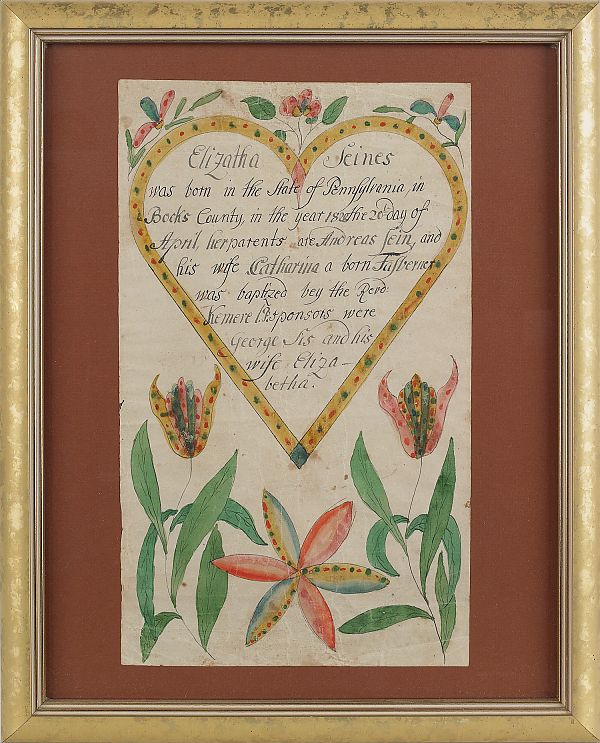 Elizatha Seines
was born in the State of Pennsylvania, in
Bocks County, in the year 1820 the 20 day of
April, her parents are Andreas Sein, and
his wife Catharina a born Tasberner
was baptized bey the Revd:
Kemere sponsors were
George Sis and his
wife Eliza-
betha.